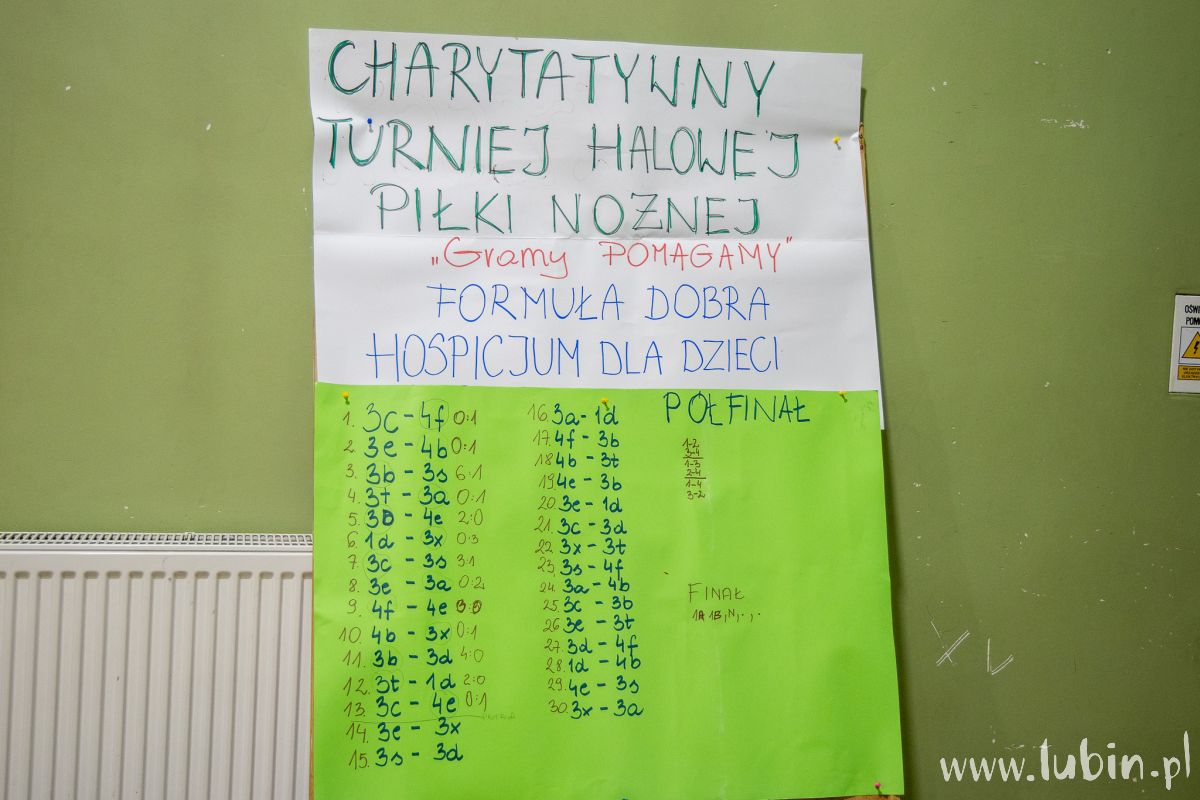 CHARYTATYWNY
TURNIEJ HALOWEJ
PIŁKI NOŻNEJ
„Gramy POMAGAMY”
FORMUŁA DOBRA
HOSPICJUM DLA DZIECI
1. 3c - 4f 0:1
2. 3e - 4b 0:1
3. 3b - 3s 6:1
4. 3t - 3a 0:1
5. 3D - 4e 2:0
6. 1d - 3x 0:3
7. 3c - 3s 3:1
8. 3e - 3a 0:2
9. 4f - 4e
10. 4b - 3x 0:1
11. 3b - 3d 4:0
12. 3t - 1d 2:0
13. 3c - 4e 0:1
14. 3e - 3x
15. 3s - 3d
16. 3a - 1d
17. 4f - 3b
18 4b - 3t
19. 4e - 3b
20. 3e - 1d
21. 3c - 3d
22. 3x - 3t
23. 3s - 4f
24. 3a - 4b
25. 3c - 3b
26 3e - 3t
27. 3d - 4f
28. 1d - 4b
29. 4e - 3s
30. 3x - 3a
PÓŁFINAŁ
1-2
3-4
1-3
2-4
1-4
3-2
FINAŁ
www.lubin.pl